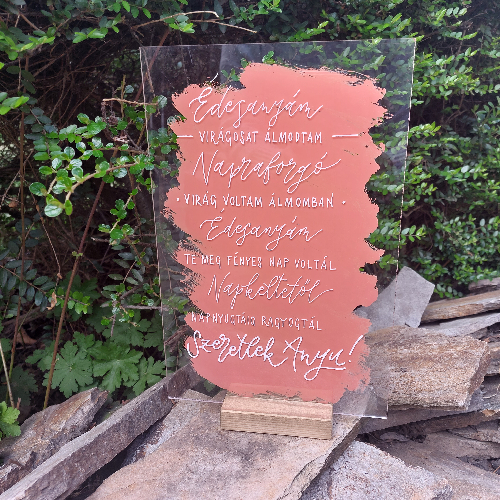 Édesanyám
VIRÁGOSAT ÁLMODTAM
Napraforgó
• VIRÁG VOLTAM ÁLMOMBAN •
Édesanyám
TE MEG FÉNYES NAP VOLTÁL
Napkeltétől
NAPNYUGTÁIG RAGYOGTÁL
Szeretlek Anyu!